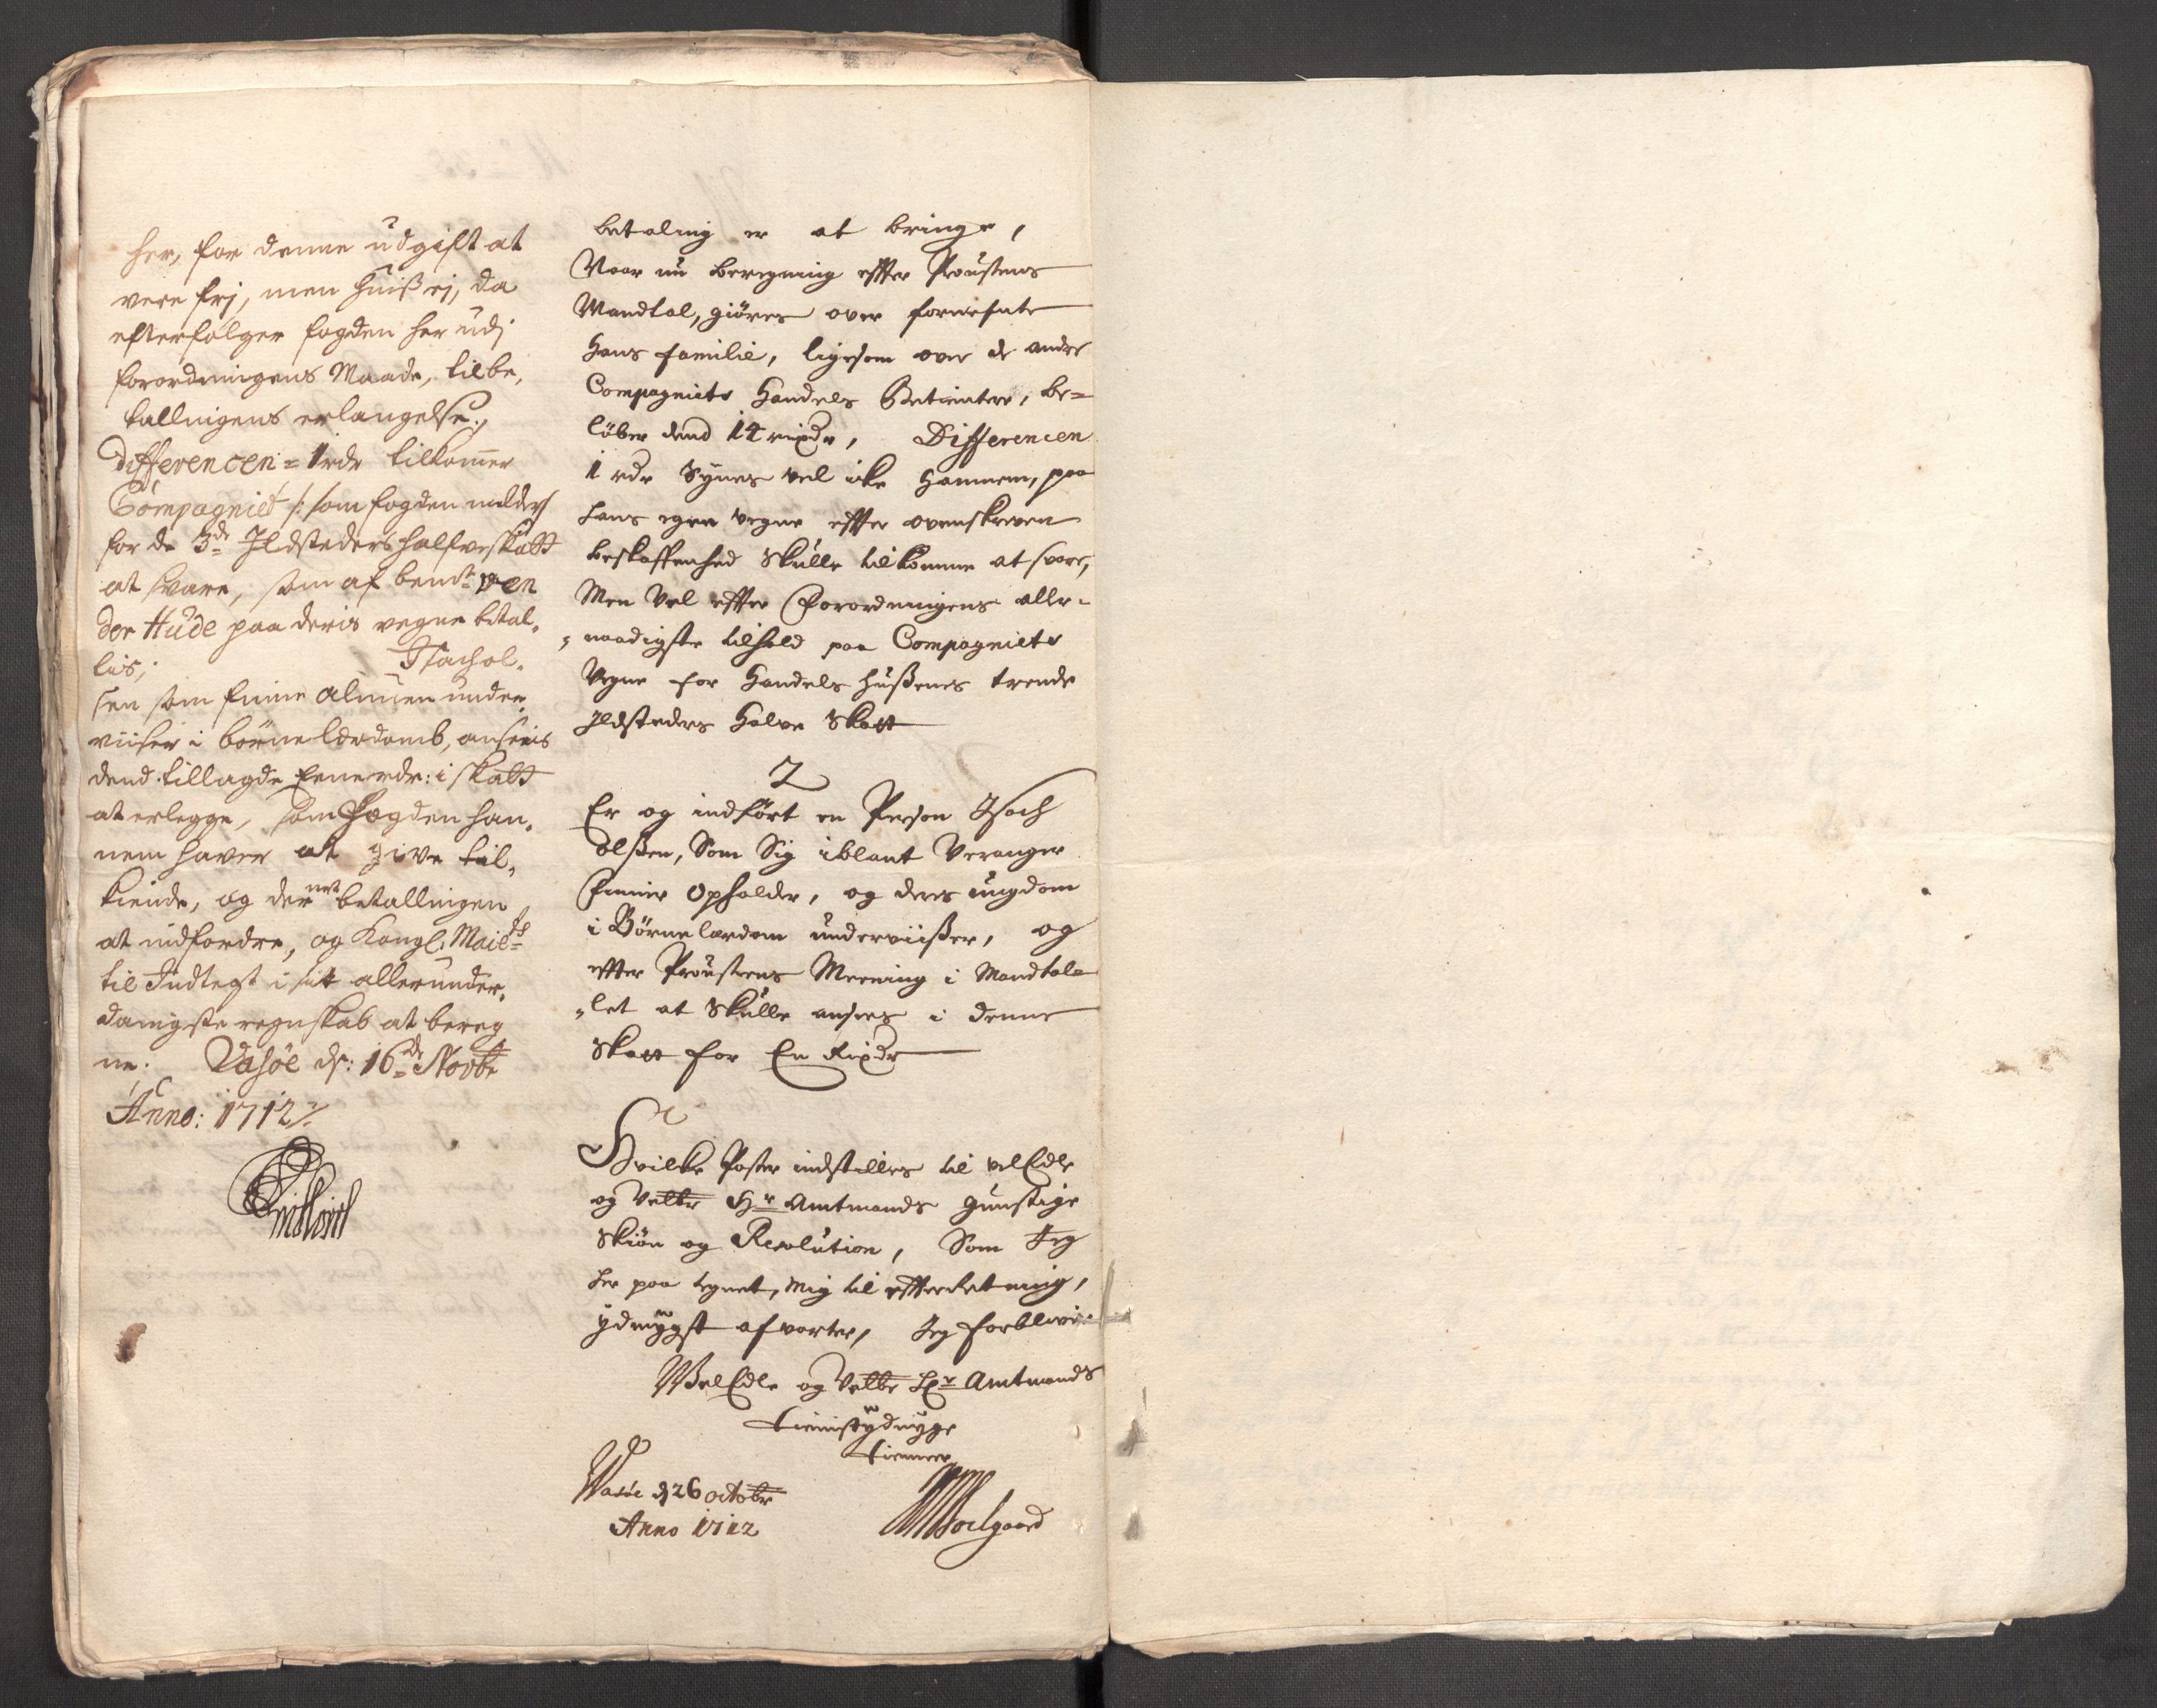 her, for denne udgift at
vere frj, men huiß ej, da
efterfølger fogden her udj
forordningens Maade, til be,
tallnigens erlangelse.,
Differencen = 1 rdr tilkommer
Compagniet /: som fogden melder
for de 3de Jldsteders halfve skatt
at svare, som af bemte von
der Hude paa deris vegne betal,
lis; Isachol,
sen som finne almuen under,
viiser i børne lærdomb, ansees
dend tillagde Een rdr: i skatt
at erlegge, som Fogden han,
nem haver at give til,
kiende, og der nest betallingen
at indfordre, og Kongl: Maits
til Indtegt i sit allerunder,
danigste regnskab at bereg
ne. Vasöe ds: 16de Novbr
Anno: 1712
betaling er at bringe,
Naar nu beregning effter Proustens
Mandtal, giöres over fornefnte
hans familie, ligesom over de andre
Compagniets Handels Betientere, be=
löber dend 14 rixdr, Differencen
1 rdr Synes vel icke hannem, paa
hans egne vegne effter ovenskreven
beskaffenhed skulle tilkomme at svare,
Men Vel effter Forordningens aller-
naadigste tilhold paa Compagniets
Vegne for Handels Hußenes trende
Jldsteders Halve Skatt
2
Er og indfört en Person Isach
olßen, Som Sig iblant Veranger
Finner Opholder, og deres ungdom
i Börnelærdom underviißer, og
effter Proustens Meening i Mandtal-
let at Skulle ansees i denne
Skatt for En Rixdr
Hvilke Poster indstilles til velEdle
og Velbr Hr Amtmands gunstige
Skiön og Resolution, Som Jeg
her paa tegnet, mig til effterRetning,
ydmygst afvarter, Jeg forblivr
WelEdle og Velbr Hr Amtmands
tienistydmyge
tienner
Wasöe d 26 octobr
Anno 1712